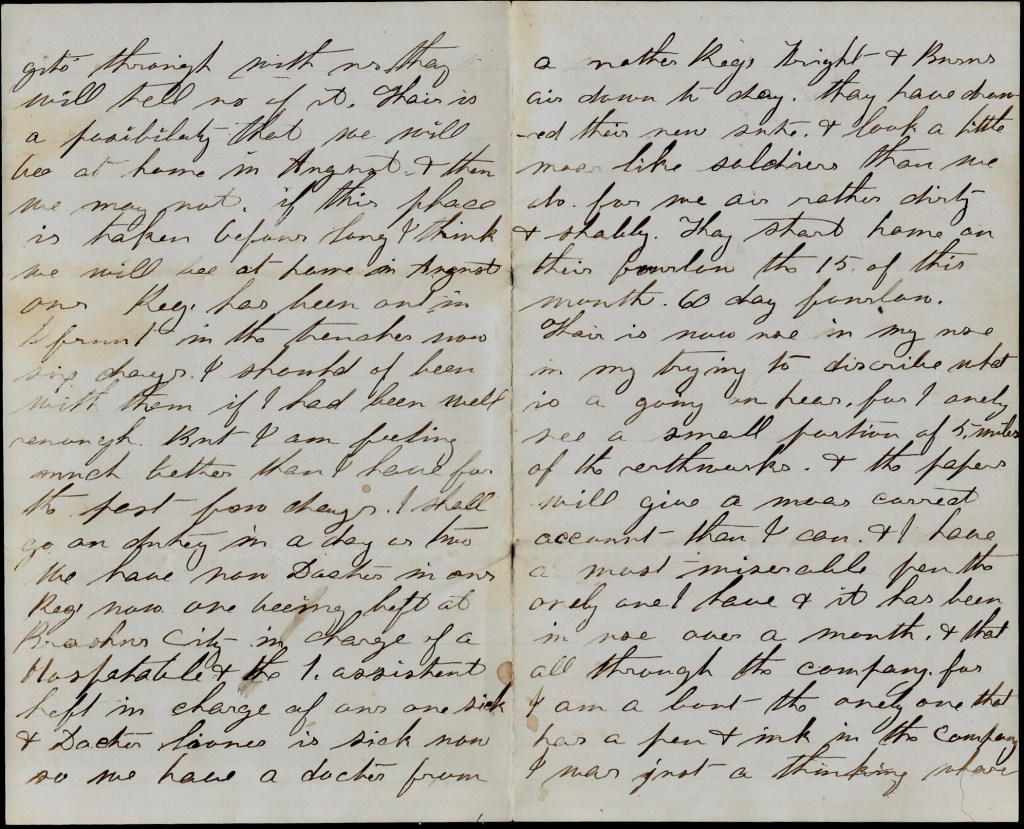 gits through with us thay
will tell us of it. Thair is
a posibility that we will
bee at home in August. & then
we may not. if this place
is taken befour long I think
we will bee at home in August
our Reg. has been out in
frunt in the trenches now
six days. I should of been
with them if I had been well
enough. But I am feeling
much better than I have for
the past fow days. I shall
go on dutey in a day or two
We have non Docter in our
Reg now one beeing left at
Brashur City in charge of a
Hospatable & the 1. assistent
left in charge of our one sick
& Docter is sick now
so we have a docter from
a nother Reg. Wright & Burns
air down to day. thay have drawn
-red their new sute. & look a little
moar like soldiers than we
do. for we air rather dirty
& shably. Thay start home on
their fourlon the 15. of this
month. 60 day fourlon.
Thair is now use in my use
in my trying to discribe what
is a going on hear. for I onely
see a small portion of 5. miles
of the erthworks. & the papers
will give a moar correct
account than I can. & I have
a most miserable pen the
onely one I have & it has been
in use over a month. & that
all through the company. for
I am a bout the onely one that
has a pen & ink in the Company
I was just a thinking whare